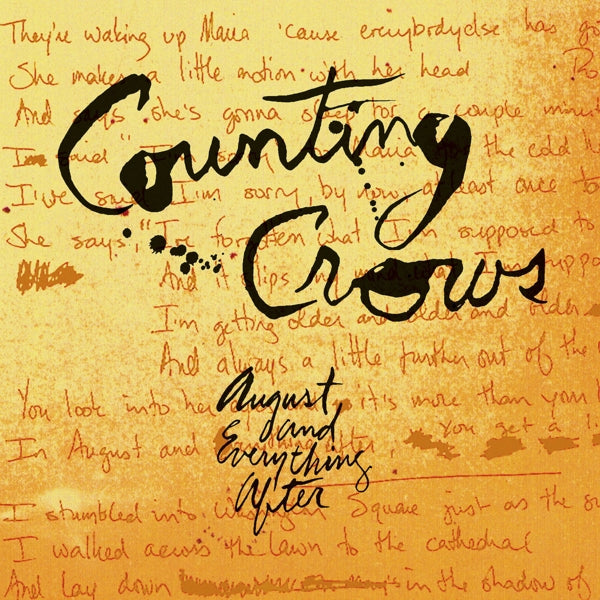 They're waking up Maria 'cause everybody else has go
She makes a little motion with her head
And says she's gonna sleep for a couple minut
Counting
I said "I'm sorry to Maria for the cold
I've said I'm sorry by now, at least once to
She says, "I've forgotten what I'm supposed to
Crows
And it slips my mind what I'm suppo
I'm getting older and older and older
And always a little further out of the
August
and
Everything
After
You look into her it's more than your
In August and Everything After you get a li
I stumbled into Washington Square just as the su
I walked across the lawn to the cathedral
And lay down in the shadow of